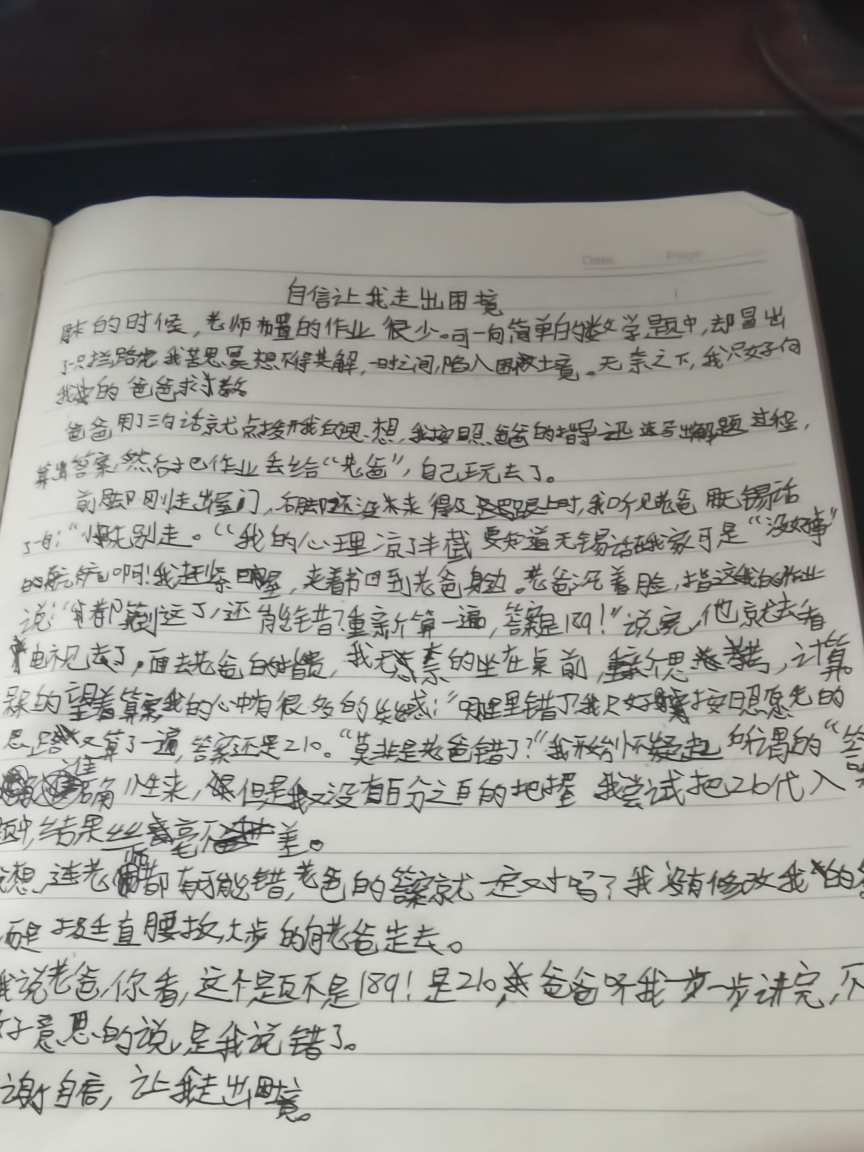 Date Page
自信让我走出困境
的时候,老师布置的作业很少。可一向简单的数学题中,却冒出
了一只拦路虎,我苦思冥想不得其解,一时之间,陷入困境。无奈之下,我只好向
我的爸爸求教
爸爸用了三句话就点拨开我的思想,我按照爸爸的指导迅速写出解题过程,
算出答案,然后把作业丢给“老爸”,自己玩去了。
前脚刚走出屋门,右脚还没来得及跟上时,我听见老爸用无锡话
了句:“别走。“我的心理凉了半截要知道无锡话在我家可是“没好事”
的啊!我赶紧,夹着书回到老爸身边。老爸沉着脸,指这我的作业
说:“都到这了,还能错?重新算一遍,答案是189!”说完,他就去看
电视去了,面老爸的指责,我无奈的坐在桌前,重新思考,计算
的望着算案我的心中有很多的疑惑:“哪里错了我只好按照原先的
思路又算了一遍,答案还是210。“莫非是老爸错了?”我开始怀疑起所谓的“答
准确性来,但是我又没有百分之百的把握我尝试把210代入
题中,结果丝毫不差。
想,连老师都有可能错,老爸的答案就一定对吗?我没有修改我的
而是挺直腰板,大步的向老爸走去。
我说老爸,你看,这个题不是189!是210,爸爸听我一步一步讲完,不
好意思的说,是我说错了。
谢自信,让我走出困境。